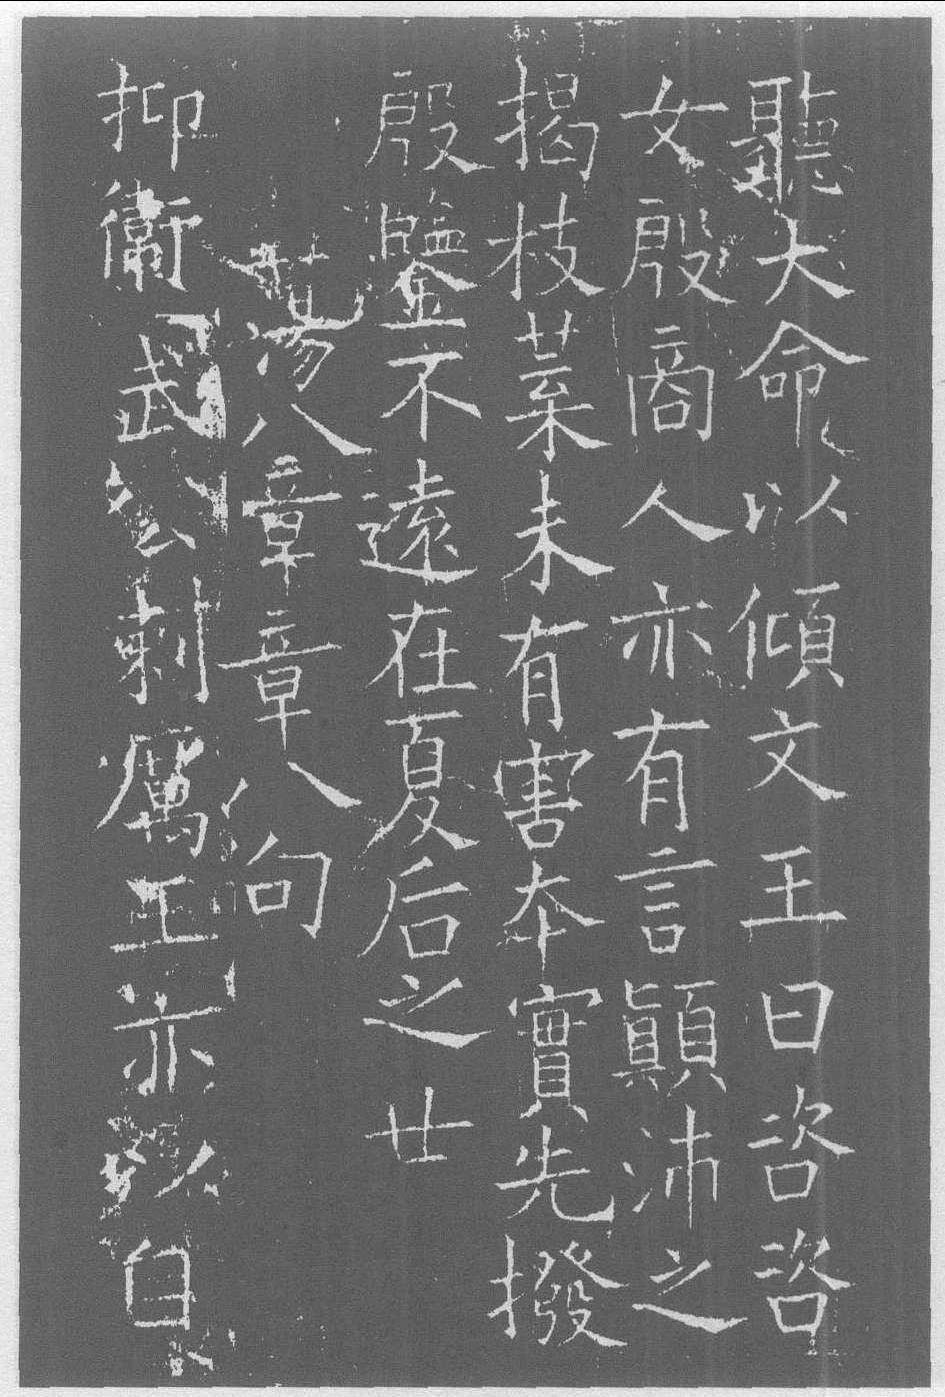 聽大命以傾文王曰咨咨
女殷商人亦有言顛沛之
揭枝葉未有害本實先撥
殷鑒不遠在夏后之世
蕩八章章八句
抑衛武公刺厲王亦以自